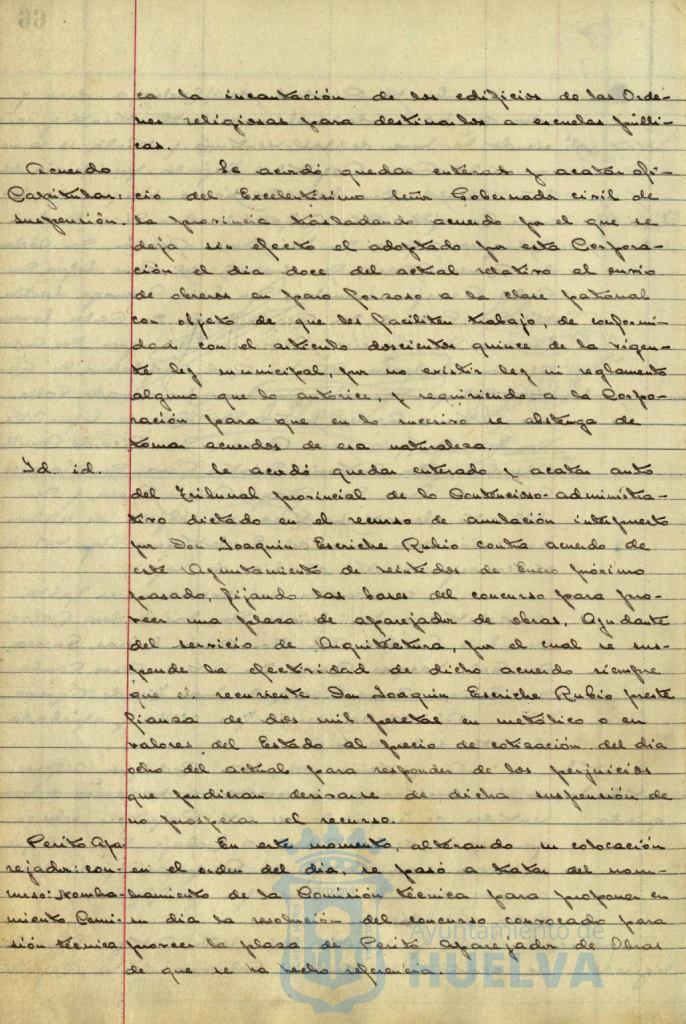 ca la incautación de los edificios de las Orde-
nes religiosas para destinarlos a escuelas públi-
cas.
Acuerdo Se acordó quedar enterado y acatar ofi-
Capitular: cio del Excelentísimo Señor Gobernador civil de
suspensión. la provincia trasladando acuerdo por el que se
deja sin efecto el adoptado por esta Corpora-
ción el día doce del actual relativo al envío
de obreros en paro forzoso a la clase patronal
con objeto de que les faciliten trabajo, de conformi-
dad con el artículo doscientos quince de la vigen-
te ley municipal, por no existir ley ni reglamento
alguno que lo autorice, y requiriendo a la Corpo-
ración para que en lo sucesivo se abstenga de
tomar acuerdos de esa naturaleza.
Id. id. Se acordó quedar enterado y acatar auto
del Tribunal provincial de lo Contencioso-administra-
tivo dictado en el recurso de anulación interpuesto
por Don Joaquin Escriche Rubio contra acuerdo de
este Ayuntamiento de veintidos de Enero próximo
pasado, fijando las bases del concurso para pro-
veer una plaza de aparejador de obras, Ayudante
del servicio de Arquitectura, por el cual se sus-
pende la efectividad de dicho acuerdo siempre
que el recurrente Don Joaquin Escriche Rubio preste
fianza de dos mil pesetas en metálico o en
valores del Estado al precio de cotización del dia
ocho del actual para responder de los perjuicios
que pudieran derivarse de dicha suspensión de
no prosperar el recurso.
Perito Apa- En este momento, alterando su colocación
rejador: con- en el orden del dia, se pasó a tratar del nom-
curso: Nombra- bramiento de la Comisión técnica para proponer en
miento Comi- su dia la resolución del concurso convocado para
sión técnica proveer la plaza de Perito Aparejador de Obras
de que se ha hecho referencia.
Ayuntamiento de
HUELVA